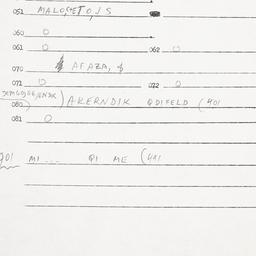 051 MALOGETO, J S
060 0
061 0 062 0
070 AFAZA, $
071 0 072 0
080 AKERNDIK QDIFELD (401
081 0
401 MI ... QI ME (441